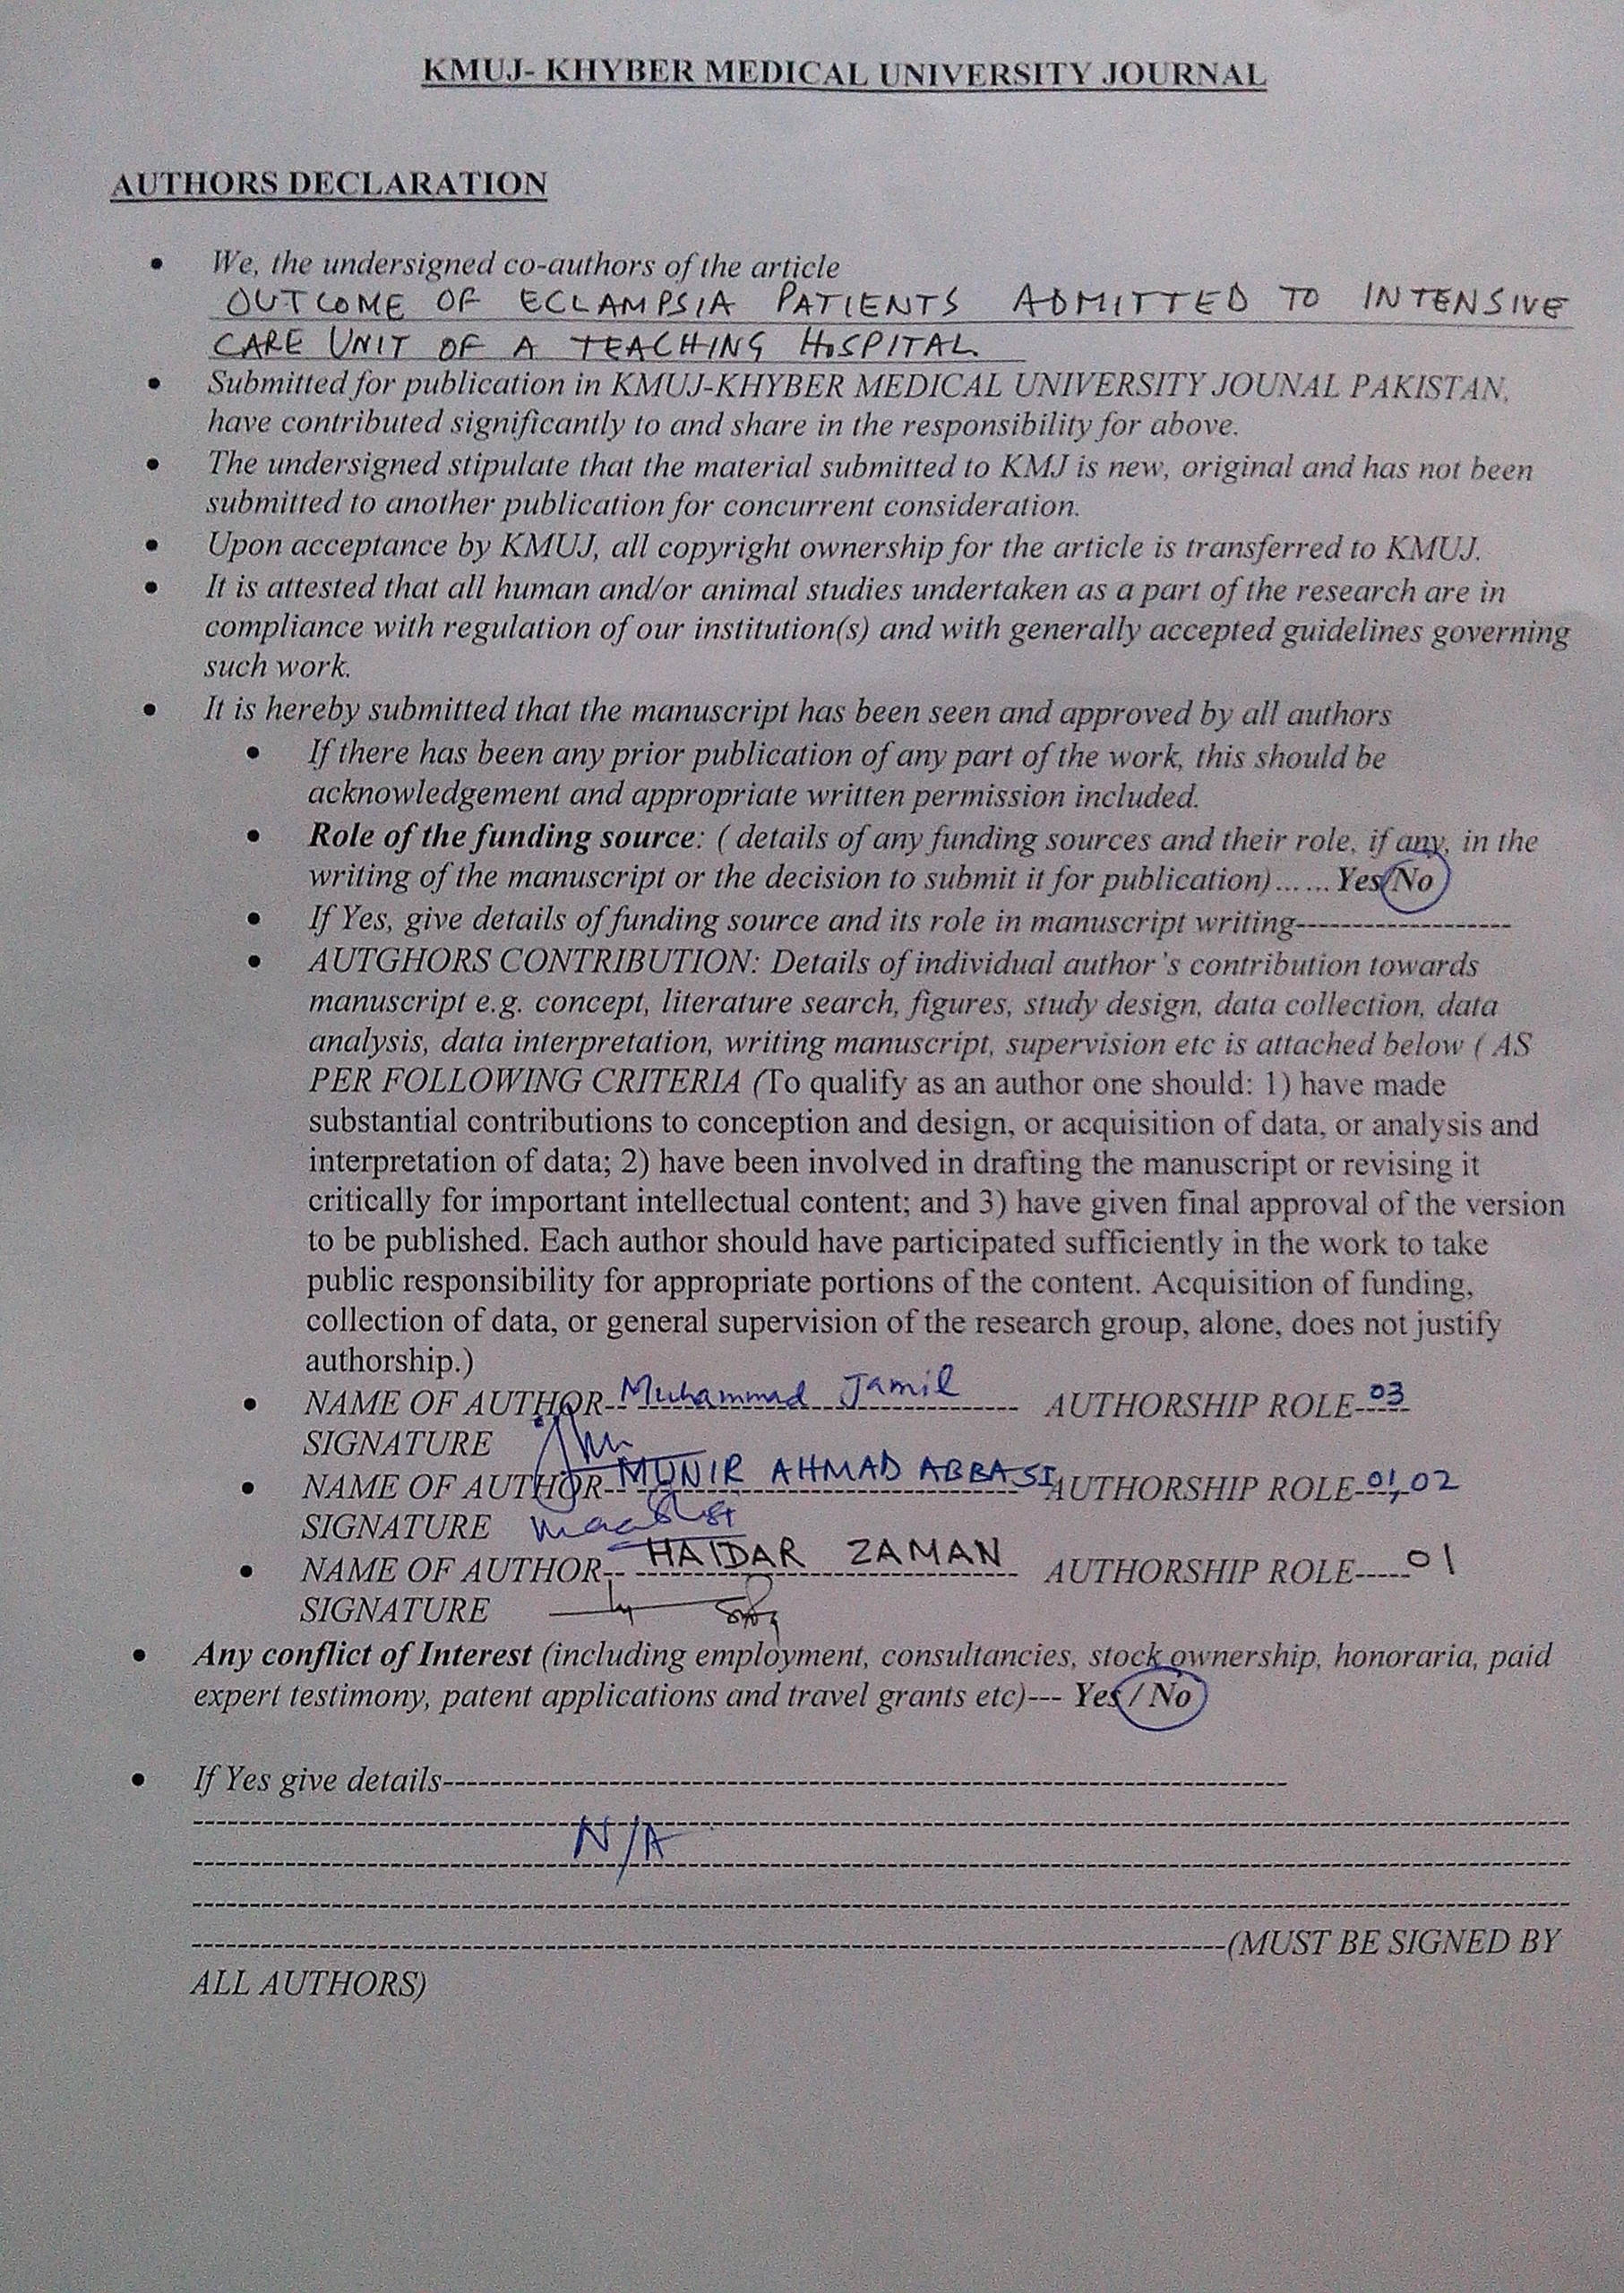 KMUJ- KHYBER MEDICAL UNIVERSITY JOURNAL
AUTHORS DECLARATION
• We, the undersigned co-authors of the article
OUTCOME OF ECLAMPSIA PATIENTS ADMITTED TO INTENSIVE
CARE UNIT OF A TEACHING HOSPITAL
• Submitted for publication in KMUJ-KHYBER MEDICAL UNIVERSITY JOUNAL PAKISTAN,
have contributed significantly to and share in the responsibility for above.
• The undersigned stipulate that the material submitted to KMJ is new, original and has not been
submitted to another publication for concurrent consideration.
• Upon acceptance by KMUJ, all copyright ownership for the article is transferred to KMUJ.
• It is attested that all human and/or animal studies undertaken as a part of the research are in
compliance with regulation of our institution(s) and with generally accepted guidelines governing
such work.
• It is hereby submitted that the manuscript has been seen and approved by all authors
• If there has been any prior publication of any part of the work, this should be
acknowledgement and appropriate written permission included.
• Role of the funding source: ( details of any funding sources and their role, if any, in the
writing of the manuscript or the decision to submit it for publication)...... Yes/No
• If Yes, give details of funding source and its role in manuscript writing-------------------
• AUTGHORS CONTRIBUTION: Details of individual author's contribution towards
manuscript e.g. concept, literature search, figures, study design, data collection, data
analysis, data interpretation, writing manuscript, supervision etc is attached below ( AS
PER FOLLOWING CRITERIA (To qualify as an author one should: 1) have made
substantial contributions to conception and design, or acquisition of data, or analysis and
interpretation of data; 2) have been involved in drafting the manuscript or revising it
critically for important intellectual content; and 3) have given final approval of the version
to be published. Each author should have participated sufficiently in the work to take
public responsibility for appropriate portions of the content. Acquisition of funding,
collection of data, or general supervision of the research group, alone, does not justify
authorship.)
• NAME OF AUTHOR-- Muhammad Jamil AUTHORSHIP ROLE-03
SIGNATURE
• NAME OF AUTHOR-- MUNIR AHMAD ABBASI AUTHORSHIP ROLE-01,02
SIGNATURE
• NAME OF AUTHOR-- HAIDAR ZAMAN AUTHORSHIP ROLE-----01
SIGNATURE
• Any conflict of Interest (including employment, consultancies, stock ownership, honoraria, paid
expert testimony, patent applications and travel grants etc)--- Yes / No
• If Yes give details----------------------------------------------------------------------
N/A
(MUST BE SIGNED BY
ALL AUTHORS)